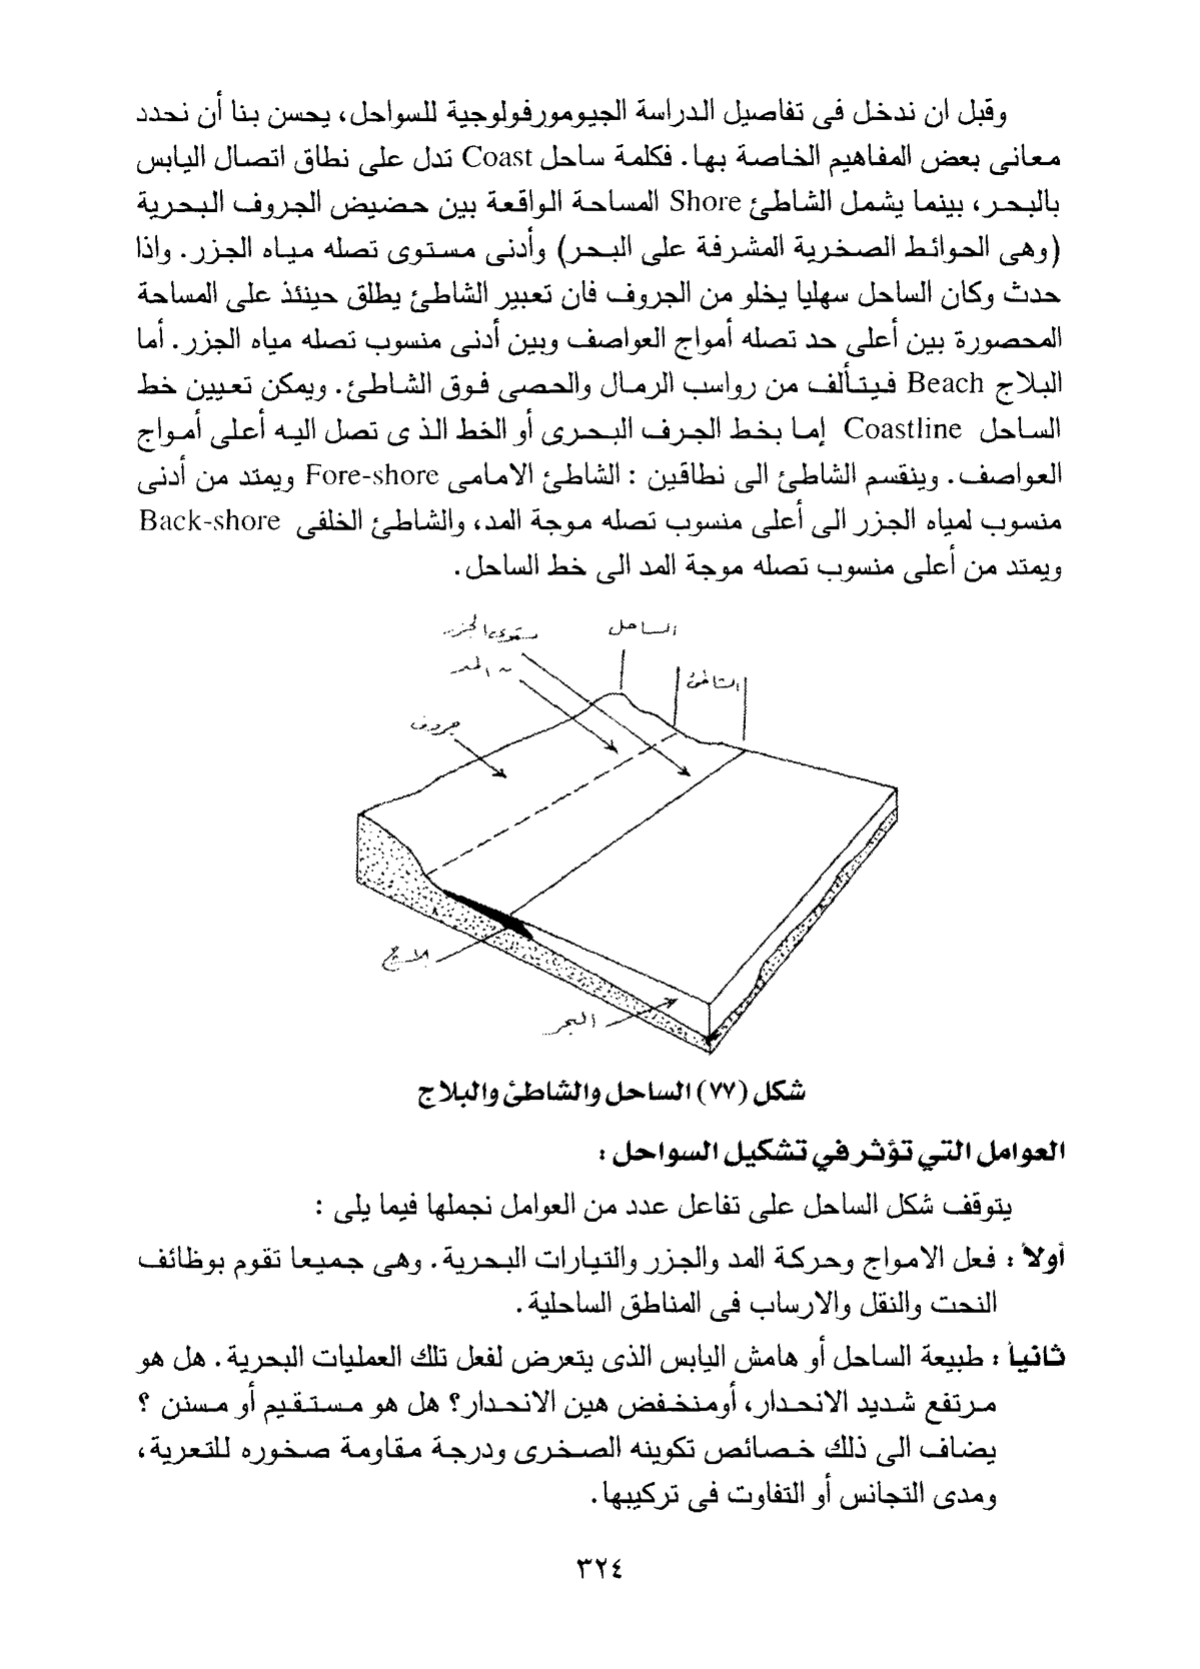 وقبل ان ندخل فى تفاصيل الدراسة الجيومورفولوجية للسواحل، يحسن بنا أن نحدد
معانى بعض المفاهيم الخاصة بها. فكلمة ساحل Coast تدل على نطاق اتصال اليابس
بالبحر، بينما يشمل الشاطئ Shore المساحة الواقعة بين حضيض الجروف البحرية
(وهى الحوائط الصخرية المشرفة على البحر) وأدنى مستوى تصله مياه الجزر. واذا
حدث وكان الساحل سهليا يخلو من الجروف فان تعبير الشاطئ يطلق حينئذ على المساحة
المحصورة بين أعلى حد تصله أمواج العواصف وبين أدنى منسوب تصله مياه الجزر. أما
البلاج Beach فيتألف من رواسب الرمال والحصى فوق الشاطئ. ويمكن تعيين خط
الساحل Coastline إما بخط الجرف البحرى أو الخط الذ ى تصل اليه أعلى أمواج
العواصف. وينقسم الشاطئ الى نطاقين : الشاطئ الامامى Fore-shore ويمتد من أدنى
منسوب لمياه الجزر الى أعلى منسوب تصله موجة المد، والشاطئ الخلفى Back-shore
ويمتد من أعلى منسوب تصله موجة المد الى خط الساحل.
الساحل
مستوى الجزر
المد
الشاطئ
جروف
بلاج
البحر
شكل (٧٧) الساحل والشاطئ والبلاج
العوامل التي تؤثر في تشكيل السواحل :
يتوقف شكل الساحل على تفاعل عدد من العوامل نجملها فيما يلى :
أولاً : فعل الامواج وحركة المد والجزر والتيارات البحرية. وهى جميعا تقوم بوظائف
النحت والنقل والارساب فى المناطق الساحلية.
ثانياً : طبيعة الساحل أو هامش اليابس الذى يتعرض لفعل تلك العمليات البحرية. هل هو
مرتفع شديد الانحدار، أومنخفض هين الانحدار؟ هل هو مستقيم أو مسنن ؟
يضاف الى ذلك خصائص تكوينه الصخرى ودرجة مقاومة صخوره للتعرية،
ومدى التجانس أو التفاوت فى تركيبها.
٣٢٤